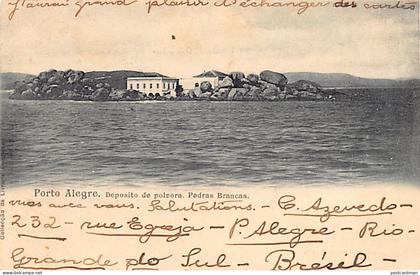 J'aurai grand plaisir d'échanger des cartes
PORTO ALEGRE. Deposito de polvora. Pedras Brancas.
vues avec vous. Salutations. - C. Azevedo -
232 - rue Egreja - P. Alegre - Rio -
Grande do Sul - Brésil -
Collecção da
www.postcardman.